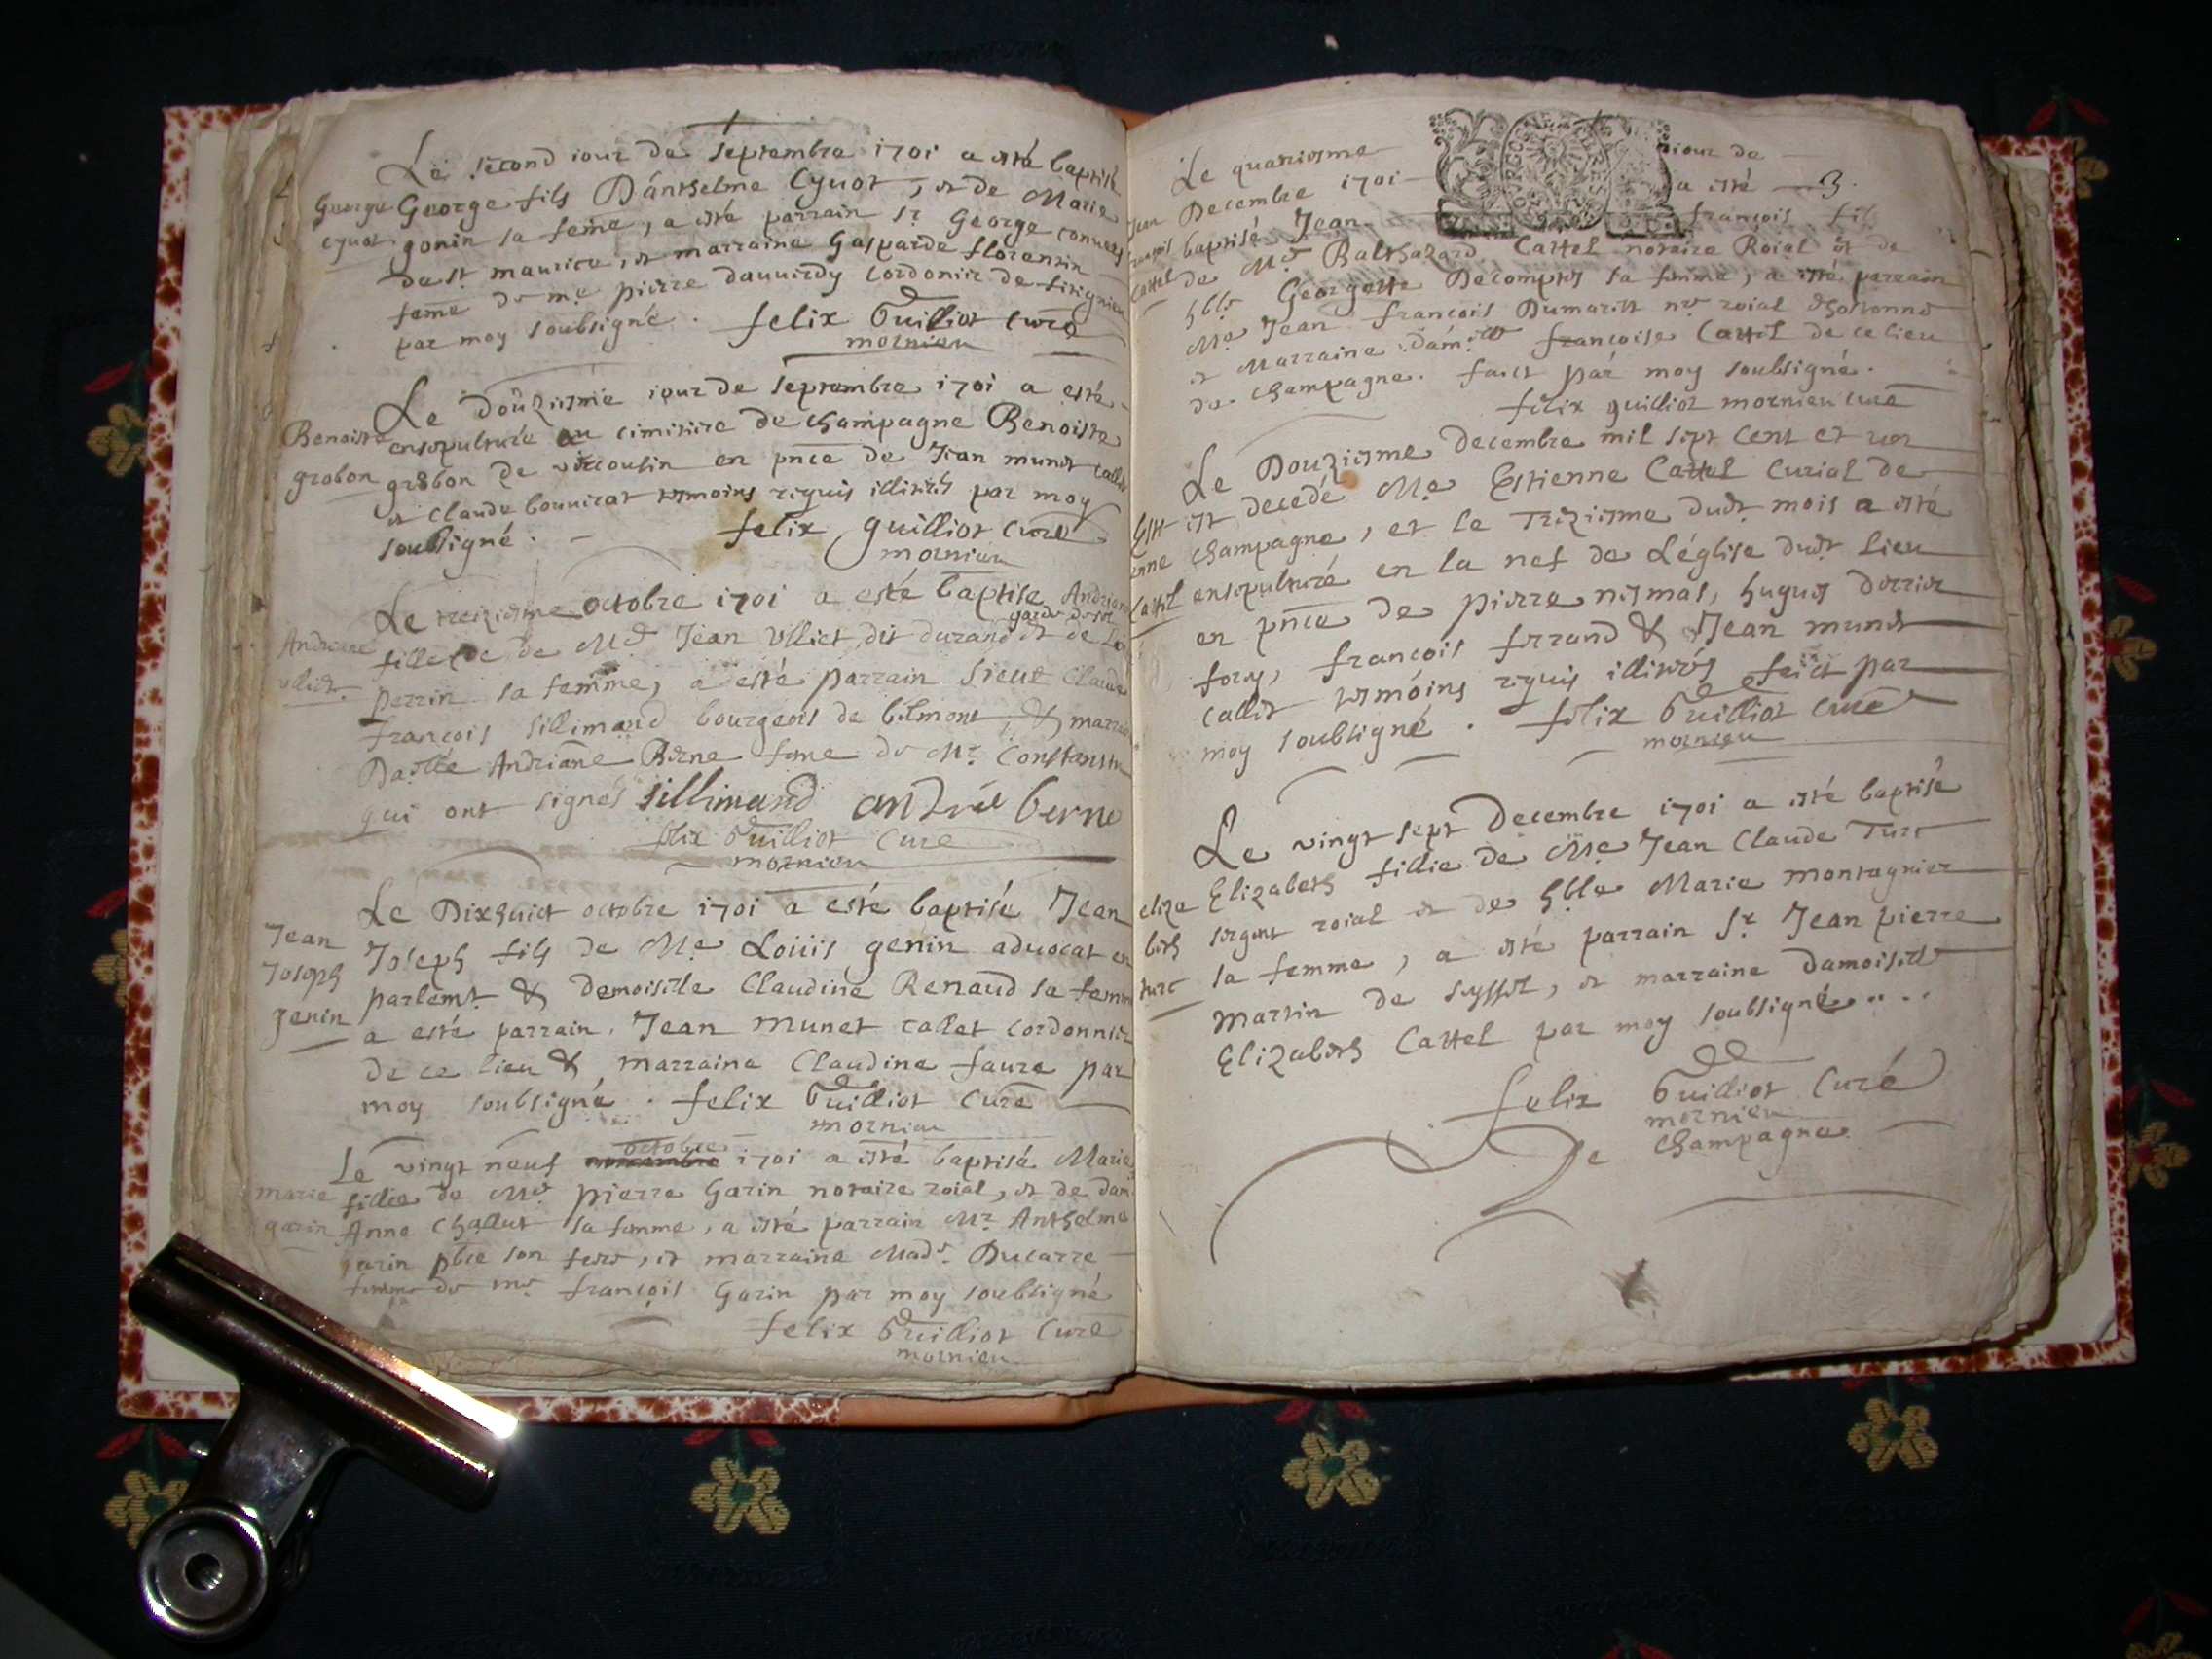 Le second iour de septembre 1701 a esté baptisé
George George fils D'anthelme Cyuot, et de Marie
Cyuot gonin sa feme, a esté parrain sr George conuers
de st maurice, et marraine Gasparde florentin
feme de me pierre dauuirdy cordonier de
par moy soubsigné. felix Guilliot curé
mornieu
Le douziesme iour de septembre 1701 a esté
Benoiste ensepulturée au cimitiere de champagne Benoiste
grobon grobon de en pnce de Jean munet callet
et Claude bonnirat tesmoins requis illitirés par moy
soubsigné. felix guilliot curé
mornieu
Le treiziesme octobre 1701 a esté baptise Andriane
garde du sel
Andriane fille de Me Jean Ulliet dit durand et de
Ulliet perrin sa femme, a esté parrain sieur Claude
françois sillimand bourgeois de belmont, & marraine
Dalle Andriane Berne feme de Mr Constantin
qui ont signés sillimand andrée berne
felix Guilliot Curé
mornieu
Le Dixhuict octobre 1701 a esté baptisé Jean
Jean Joseph fils de Me Loüis genin aduocat en
Joseph parlemt & demoiselle Claudine Renaud sa femme
genin a esté parrain Jean munet callet cordonnier
de ce lieu & marraine Claudine faure par
moy soubsigné. felix Guilliot Curé
mornieu
octobre
Le vingt neuf novembre 1701 a esté baptisé Marie
marie fillie de Me pierre Garin notaire roial, et de dam
garin Anne Challut sa femme, a esté parrain Mr Anthelme
garin pbre son frere, et marraine Made Ducarre
femme de me françois Garin par moy soubsigné
felix Guilliot Curé
mornieu
Le quatriesme iour de
Jean Decembre 1701 a esté 3.
françois baptisé Jean françois fils
Cattel de Me Balthazard Cattel notaire Roial et de
hble Georgette Decomptes sa femme, a esté parrain
Me Jean françois Dumarest nre roial
et Marraine Damlle françoise Cattel de ce lieu
de Champagne. faict par moy soubsigné.
felix guilliot mornieu curé
Le Douziesme decembre mil sept cent et un
Esti est decedé Me Estienne Cattel Curial de
enne Champagne, et le Treziesme dudt mois a esté
Cattel ensepulturé en la nef de l'église dudt lieu
en pnce de pierre nismal, hugues derrier
fory, françois ferrand & Jean munet
callet tesmoins requis illitirés faict par
moy soubsigné. felix Guilliot Curé
mornieu
Le vingt sept Decembre 1701 a esté baptisé
eliza Elizabeth fillie de Me Jean Claude Turc
beth sergent roial et de hble Marie montagnier
turc sa femme, a esté parrain Sr Jean pierre
Martin de seyssel, et marraine damoiselle
Elizabeth Cattel par moy soubsigné....
felix Guilliot Curé
mornieu
De Champagne